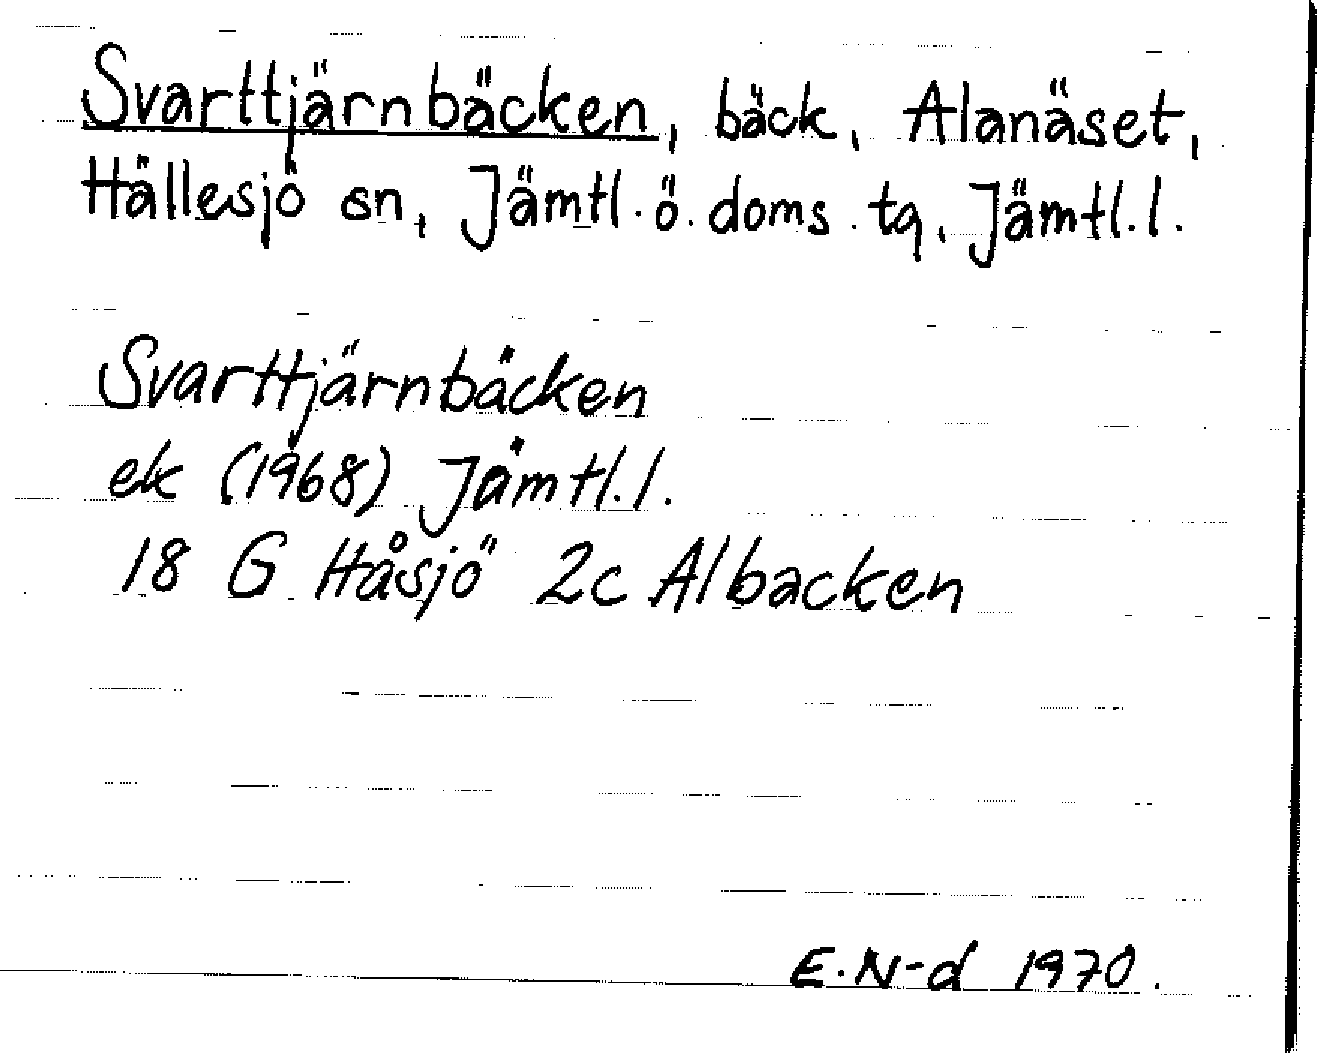 Svarttjärnbäcken, bäck, Alanäset,
Hällesjö sn, Jämtl. ö. doms. tg, Jämtl. l.
Svarttjärnbäcken
ek (1968) Jämtl. l.
18 G Håsjö 2c Albacken
E. N-d 1970.